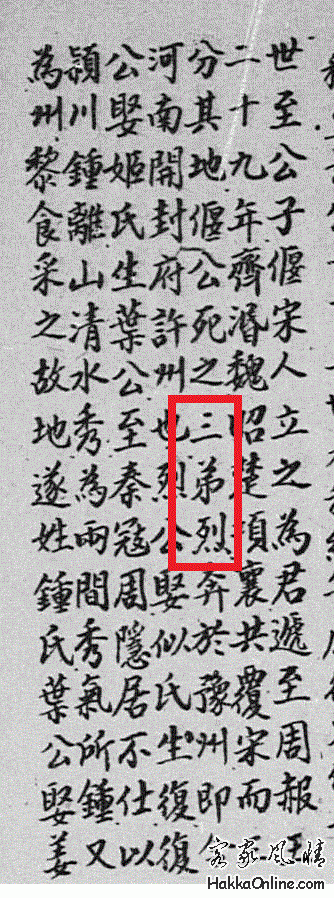 世至公子偃宋人立之為君遞至周赧王
二十九年齊湣魏昭楚頃襄共覆宋而
分其地偃公死之三弟烈奔於豫州即
河南開封府許州也烈公娶似氏生復復
公娶姬氏生葉公至秦冠周隱居不仕以
頴川鍾離山清水秀為兩間秀氣所鍾又
為州黎食采之故地遂姓鍾氏葉公娶姜
客家風情
HakkaOnline.com